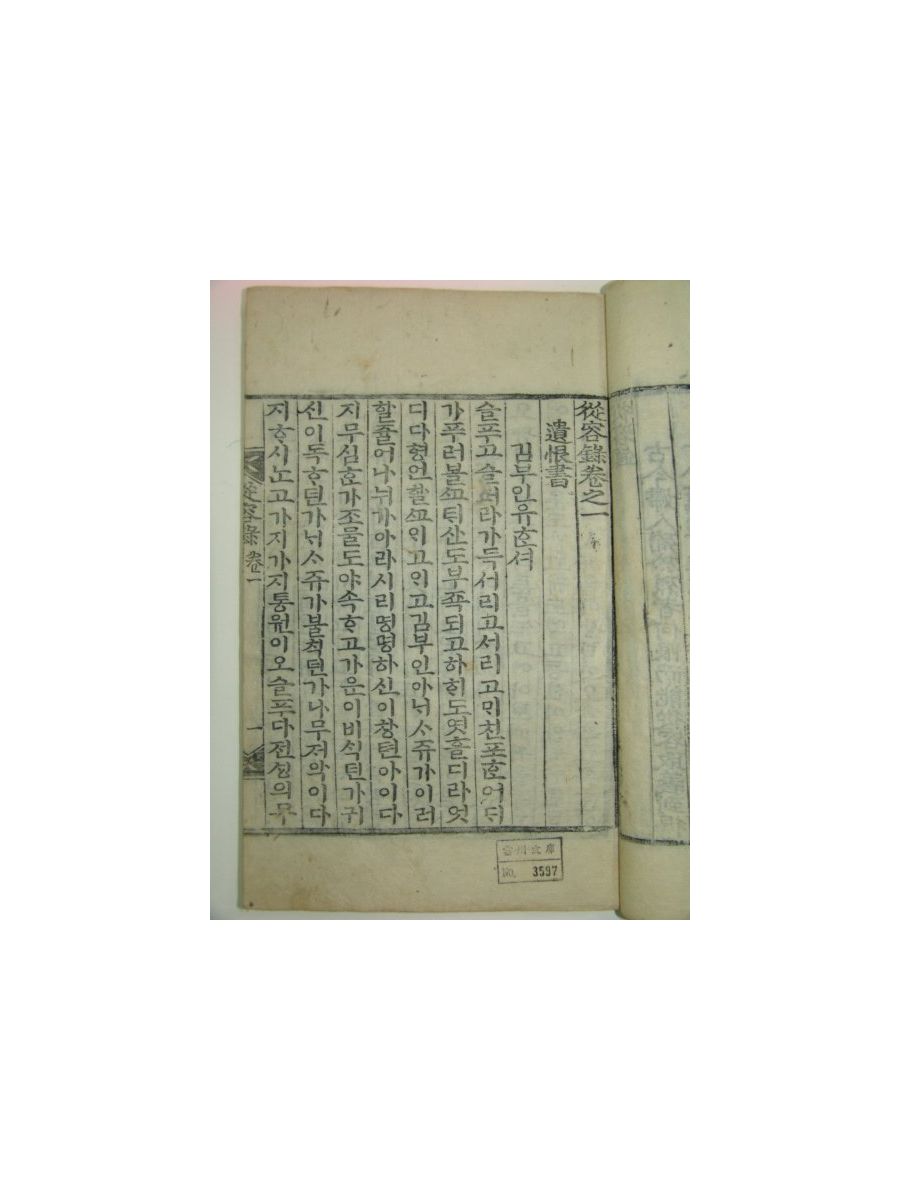 從容錄卷之一
遺恨書
김부인유ᄒᆞᆫ셔
슬푸고슬퍼라가득서리고서리고ᄆᆡ친포ᄒᆞᆫ어ᄃᆡ
가푸러볼ᄭᅩ태산도부족되고하ᄒᆡ도엿흘디라엇
디다형언할ᄭᅩᄋᆡ고ᄋᆡ고김부인아ᄂᆡᄉᆞ쥬가이러
할쥴어ᄂᆞ뉘가아라시리명명하신이창텬아이다
지무심ᄒᆞᆫ가조물도야속ᄒᆞ고가운이비식턴가귀
신이독ᄒᆞ턴가ᄂᆡᄉᆞ쥬가불칙턴가나무저악이다
지ᄒᆞ시노고가지가지통원이오슬푸다전ᄉᆡᆼ의무
從容錄 卷一
一
No. 3597